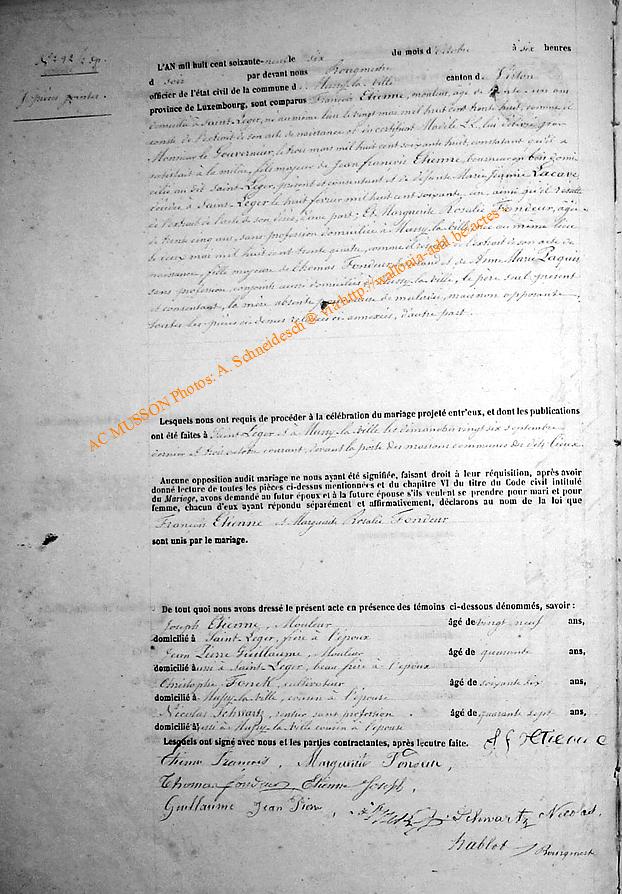 N° 12
L'AN mil huit cent soixante-neuf le six du mois d'octobre à six heures
d soir par devant nous Bourgmestre
officier de l'état civil de la commune de Mussy-la-Ville canton de Virton
province de Luxembourg, sont comparus François Etienne, mouleur, âgé de trente un ans
domicilié à Saint-Léger, né au même lieu le vingt mai mil huit cent trente huit, comme il
conste de l'extrait de son acte de naissance et un certificat Modèle L, lui délivré par
Monsieur le Gouverneur, le trois mars mil huit cent soixante huit, constatant qu'il a
satisfait à la milice, fils majeur de Jean François Etienne, domi-
cilié au dit Saint-Léger, présent et consentant et de défunte Marie Jeanne Lacave
décédée à Saint-Léger le huit février mil huit cent soixante un, ainsi qu'il résulte
de l'extrait de l'acte de son décès, d'une part; Et Marguerite Rosalie Fondeur, âgée
de trente cinq ans, sans profession domiciliée à Mussy-la-Ville, née au même lieu
le deux mai mil huit cent trente quatre, comme il de l'extrait de son acte de
naissance, fille majeure de Thomas Fondeur, et de Anne Marie Paquis
sans profession, conjoints aussi domiciliés à Mussy-la-Ville, le père seul présent
et consentant, la mère absente pour cause de maladie, mais non opposante
toutes les pièces ci-dessus relatées ci-annexées, d'autre part.
AC MUSSON Photos: A. Schneidesch @ via http://wallonia-asbl.be.actes
Lesquels nous ont requis de procéder à la célébration du mariage projeté entr'eux, et dont les publications
ont été faites à Saint-Léger et à Mussy-la-Ville les dimanches vingt six septembre
dernier et trois octobre courant, devant la porte des maisons communes des dits lieux.
Aucune opposition audit mariage ne nous ayant été signifiée, faisant droit à leur réquisition, après avoir
donné lecture de toutes les pièces ci-dessus mentionnées et du chapitre VI du titre du Code civil intitulé
du Mariage, avons demandé au futur époux et à la future épouse s'ils veulent se prendre pour mari et pour
femme, chacun d'eux ayant répondu séparément et affirmativement, déclarons au nom de la loi que
François Etienne et Marguerite Rosalie Fondeur
sont unis par le mariage.
De tout quoi nous avons dressé le présent acte en présence des témoins ci-dessous dénommés, savoir :
Joseph Etienne, Mouleur âgé de vingt neuf ans,
domicilié à Saint-Léger, frère à l'époux
Jean Pierre Guillaume, Mouleur âgé de quarante ans,
domicilié aussi à Saint-Leger, beau frère à l'époux
Christophe Fonck, cultivateur âgé de soixante six ans,
domicilié à Mussy-la-Ville, cousin à l'épouse
Nicolas Schwartz, rentier sans profession âgé de quarante sept ans,
domicilié aussi à Mussy-la-Ville cousin à l'épouse
Lesquels ont signé avec nous et les parties contractantes, après lecture faite. J f Etienne
Etienne François, Marguerite Fondeur,
Thomas fondeur Etienne Joseph,
Guillaume Jean Pierre, Schwartz Nicolas,
hablot Bourgmestre